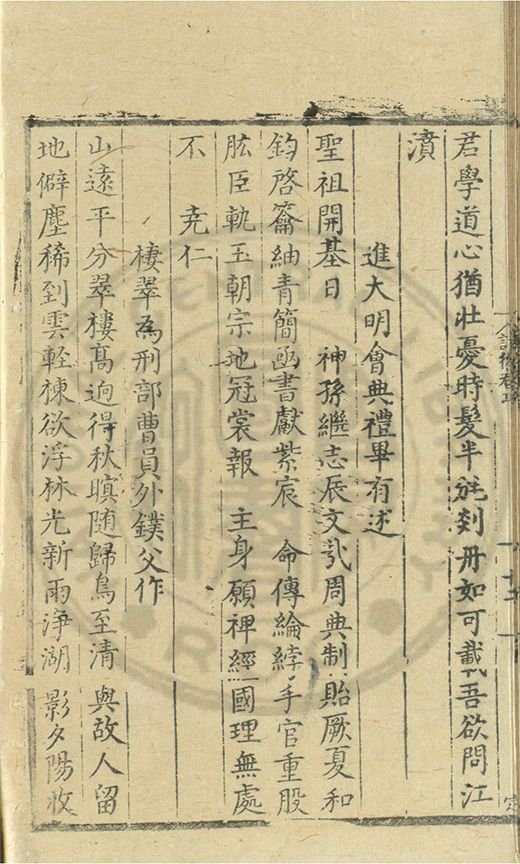 君學道心猶壯憂時髮半皤剡舟如可載吾欲問江
濆
進大明會典禮畢有述
聖祖開基日　神孫繼志辰文弘周典制貽厥夏和
鈞啓籥紬青簡函書獻紫宸　命傳綸綍手官重股
肱臣執玉朝宗地冠裳報　主身願裨經國理無處
不　堯仁
棲翠為刑部曹員外鏷父作
山遠平分翠樓高逈得秋暝随歸鳥至清與故人留
地僻塵稀到雲輕棟欲浮林光新雨淨湖影夕陽收